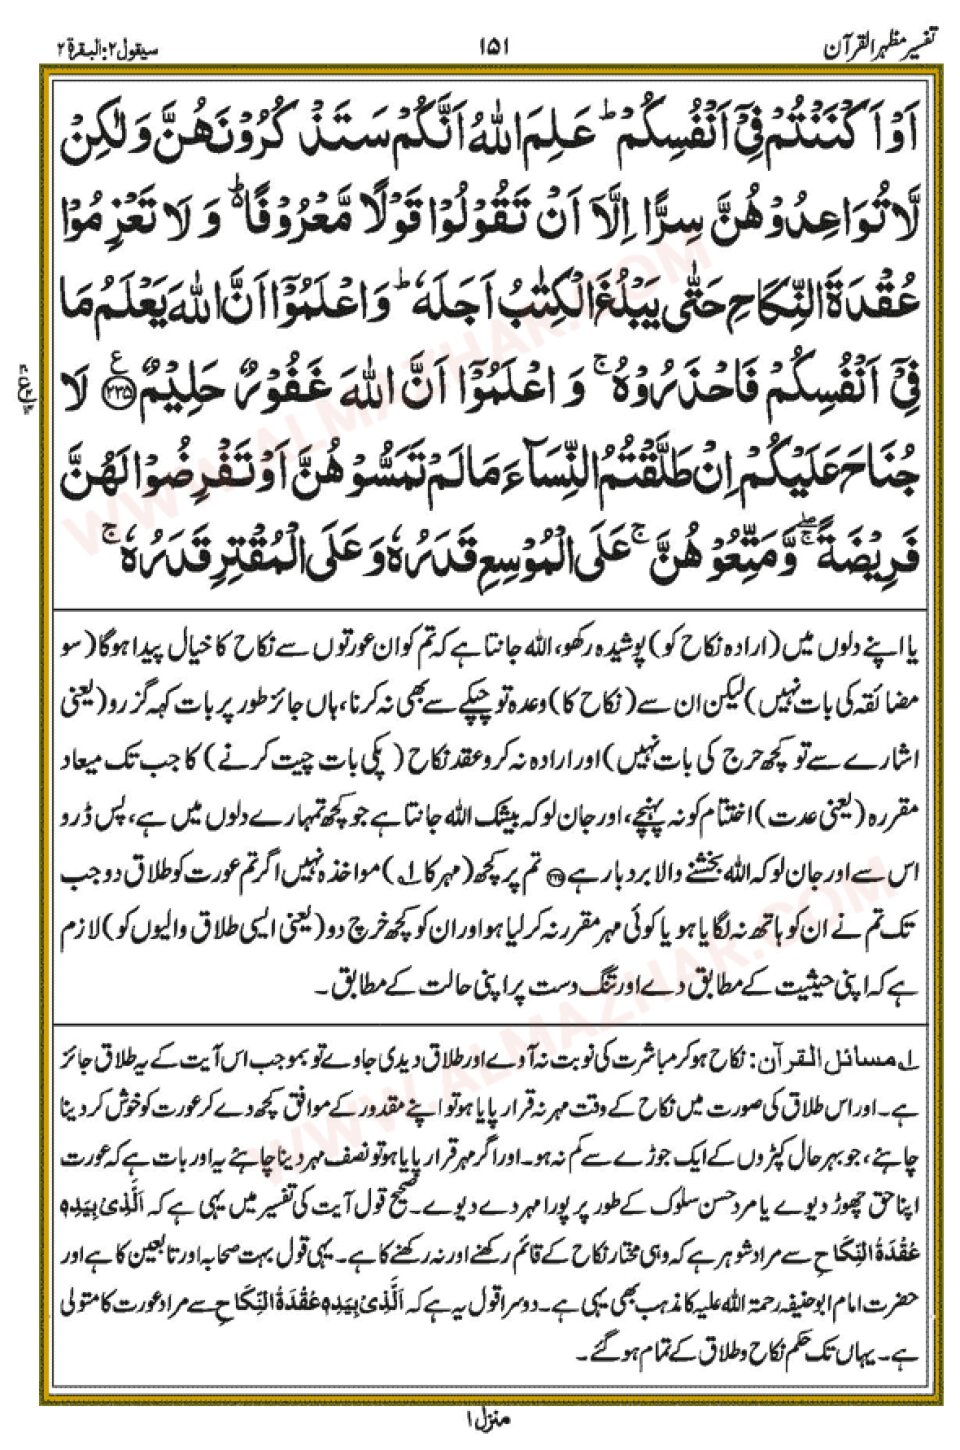 تفسیر مظہر القرآن
۱۵۱
سیقول ۲: البقرة ۲
اَوْ اَكْنَنْتُمْ فِیْۤ اَنْفُسِكُمْ ؕ عَلِمَ اللهُ اَنَّكُمْ سَتَذْكُرُوْنَهُنَّ وَلٰكِنْ
لَّا تُوَاعِدُوْهُنَّ سِرًّا اِلَّاۤ اَنْ تَقُوْلُوْا قَوْلًا مَّعْرُوْفًا ۬ؕ وَلَا تَعْزِمُوْا
عُقْدَةَ النِّكَاحِ حَتّٰی یَبْلُغَ الْكِتٰبُ اَجَلَهٗ ؕ وَاعْلَمُوْۤا اَنَّ اللهَ یَعْلَمُ مَا
فِیْۤ اَنْفُسِكُمْ فَاحْذَرُوْهُ ۚ وَاعْلَمُوْۤا اَنَّ اللهَ غَفُوْرٌ حَلِیْمٌ ﴿۲۳۵﴾ ع لَا
جُنَاحَ عَلَیْكُمْ اِنْ طَلَّقْتُمُ النِّسَآءَ مَا لَمْ تَمَسُّوْهُنَّ اَوْ تَفْرِضُوْا لَهُنَّ
فَرِیْضَةً ۚۖ وَّمَتِّعُوْهُنَّ ۚ عَلَی الْمُوْسِعِ قَدَرُهٗ وَعَلَی الْمُقْتِرِ قَدَرُهٗ ۚ
یا اپنے دلوں میں (ارادہ نکاح کو) پوشیدہ رکھو، اللہ جانتا ہے کہ تم کو ان عورتوں سے نکاح کا خیال پیدا ہوگا (سو
مضائقہ کی بات نہیں) لیکن ان سے (نکاح کا) وعدہ تو چپکے سے بھی نہ کرنا، ہاں جائز طور پر بات کہہ گزرو (یعنی
اشارے سے تو کچھ حرج کی بات نہیں) اور ارادہ نہ کرو عقد نکاح (پکی بات چیت کرنے) کا جب تک میعاد
مقررہ (یعنی عدت) اختتام کو نہ پہنچے، اور جان لو کہ بیشک اللہ جانتا ہے جو کچھ تمہارے دلوں میں ہے، پس ڈرو
اس سے اور جان لو کہ اللہ بخشنے والا بردبار ہے ﴿۲۳۵﴾ تم پر کچھ (مہر کا ۱؎) مواخذہ نہیں اگر تم عورت کو طلاق دو جب
تک تم نے ان کو ہاتھ نہ لگایا ہو یا کوئی مہر مقرر نہ کر لیا ہو اور ان کو کچھ خرچ دو (یعنی ایسی طلاق والیوں کو) لازم
ہے کہ اپنی حیثیت کے مطابق دے اور تنگ دست پر اپنی حالت کے مطابق۔
۱؎ مسائل القرآن: نکاح ہو کر مباشرت کی نوبت نہ آوے اور طلاق دیدی جاوے تو بموجب اس آیت کے یہ طلاق جائز
ہے۔ اور اس طلاق کی صورت میں نکاح کے وقت مہر نہ قرار پایا ہو تو اپنے مقدور کے موافق کچھ دے کر عورت کو خوش کر دینا
چاہئے، جو بہر حال کپڑوں کے ایک جوڑے سے کم نہ ہو۔ اور اگر مہر قرار پایا ہو تو نصف مہر دینا چاہئے یہ اور بات ہے کہ عورت
اپنا حق چھوڑ دیوے یا مرد حسن سلوک کے طور پر پورا مہر دے دیوے۔ صحیح قول آیت کی تفسیر میں یہی ہے کہ اَلَّذِیْ بِیَدِهٖ
عُقْدَةُ النِّكَاحِ سے مراد شوہر ہے کہ وہی مختار نکاح کے قائم رکھنے اور نہ رکھنے کا ہے۔ یہی قول بہت صحابہ اور تابعین کا ہے اور
حضرت امام ابوحنیفہ رحمۃ اللہ علیہ کا مذہب بھی یہی ہے۔ دوسرا قول یہ ہے کہ اَلَّذِیْ بِیَدِهٖ عُقْدَةُ النِّكَاحِ سے مراد عورت کا متولی
ہے۔ یہاں تک حکم نکاح و طلاق کے تمام ہو گئے۔
منزل ۱
WWW.ALMAZHAR.COM
WWW.ALMAZHAR.COM